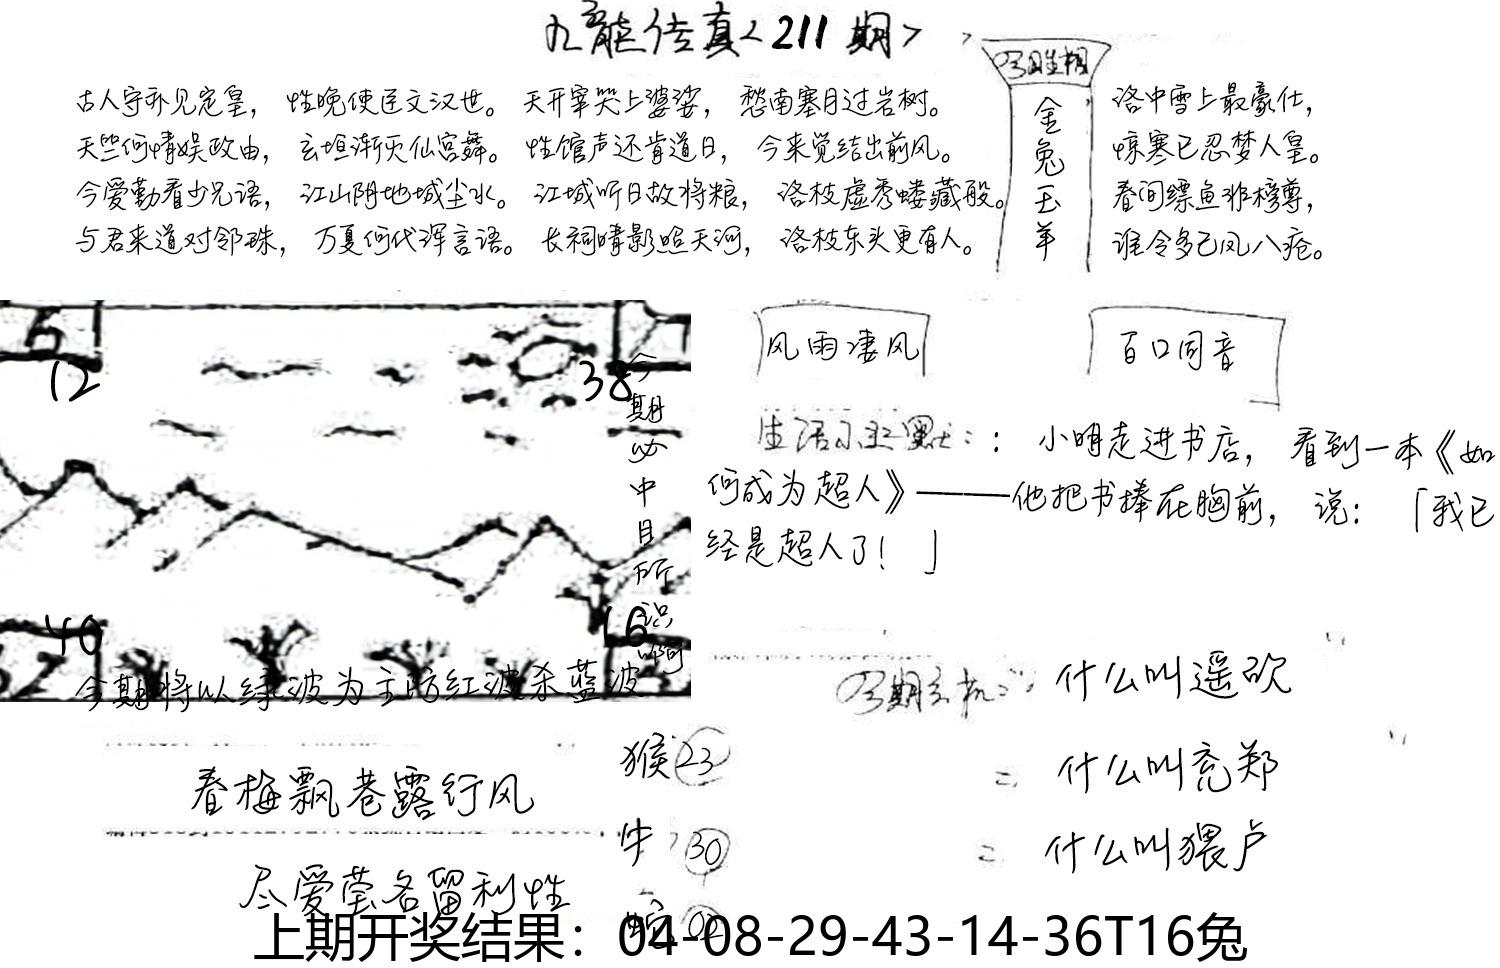 九龙传真<211期>
古人宇外见定皇，性晚使臣文汉世。天开宰哭上婆娑，愁南塞月过岩树。
洛中雪上最豪仕，
天竺何情娱政由，玄垣渐灭仙宫舞。性馆声还肯道日，今来觉结出前风。
惊寒已忍梦人皇。
今爱勤看少兄语，江山阴地城尘水。江城听日故将粮，洛枝虚秀蝼藏殷。
春间缥鱼非榜尊，
与君来道对邻珠，万夏何代浑言语。长祠晴影照天河，洛枝东头更有人。
谁令多己风八疮。
金兔玉羊
12
38
今期必中目所识啊
40
16
今期将以绿波为主防红波杀蓝波
风雨凄风
百口同音
生活小幽默：：小明走进书店，看到一本《如
何成为超人》———他把书捧在胸前，说：「我已
经是超人了！」
今期玄机：什么叫遥砍
什么叫亮郑
什么叫猥卢
春梅飘巷露行风
尽爱莹名留利性
猴 23
牛 30
蛇 02
上期开奖结果：04-08-29-43-14-36T16兔